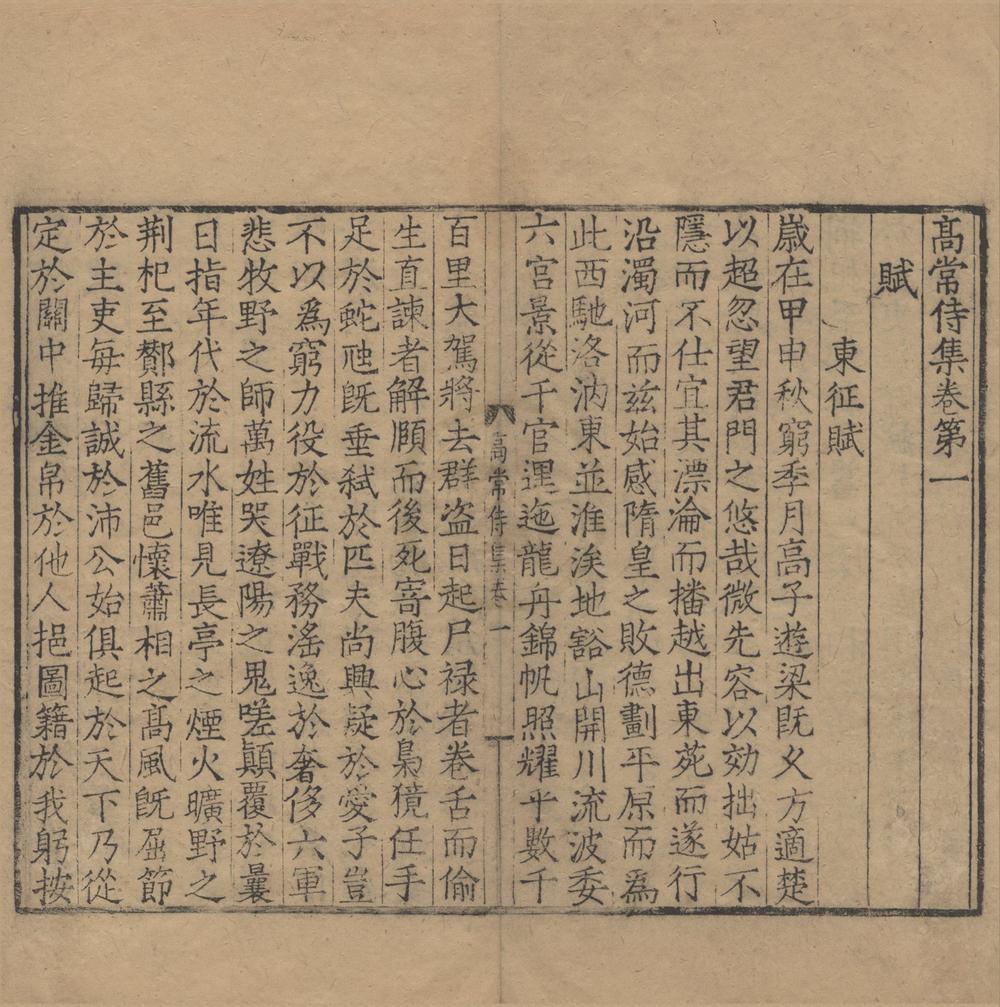 髙常侍集卷第一
賦
東征賦
嵗在甲申秋窮季月高子遊梁旣乆方適楚
以超忽望君門之悠哉微先容以効拙姑不
隱而不仕宜其漂淪而播越出東苑而遂行
沿濁河而兹始感隋皇之敗德劃平原而為
此西馳洛汭東並淮涘地豁山開川流波委
六宫景從千官邐迤龍舟錦帆照耀乎數千
髙常侍集卷一
一
百里大駕將去群盗日起尸禄者卷舌而偷
生直諫者解頤而後死寄腹心於梟獍任手
足於蛇虺旣垂弑於匹夫尚興疑於愛子豈
不以爲窮力役於征戰務滛逸於奢侈六軍
悲牧野之師萬姓哭遼陽之鬼嗟顛覆於曩
日指年代於流水唯見長亭之煙火曠野之
荆杞至酇縣之舊邑懷蕭相之高風旣屈節
於主吏每歸誠於沛公始俱起於天下乃從
定於關中推金帛於他人挹圖籍於我躬按